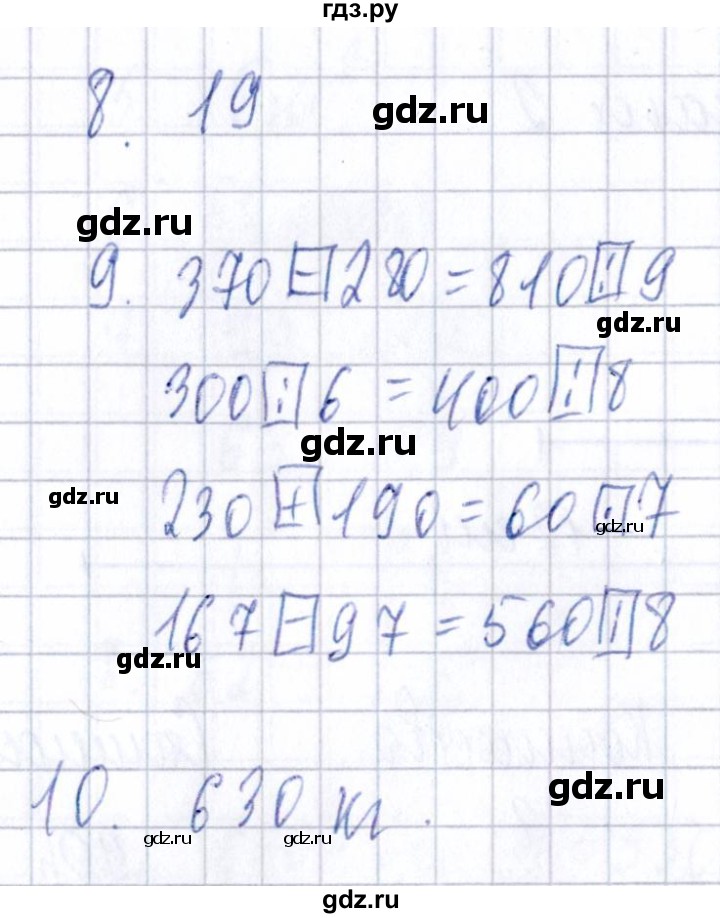 гдз.ру
8. 19
gdz.ru
gdz.ru
9. 370 [-] 280 = 810 [:] 9
gdz.ru
300 [:] 6 = 400 [:] 8
gdz.ru
gdz.ru
230 [+] 190 = 60 [·] 7
gdz.ru
167 [-] 97 = 560 [:] 8
gdz.ru
gdz.ru
10. 630 кг.
gdz.ru
gdz.ru
gdz.ru